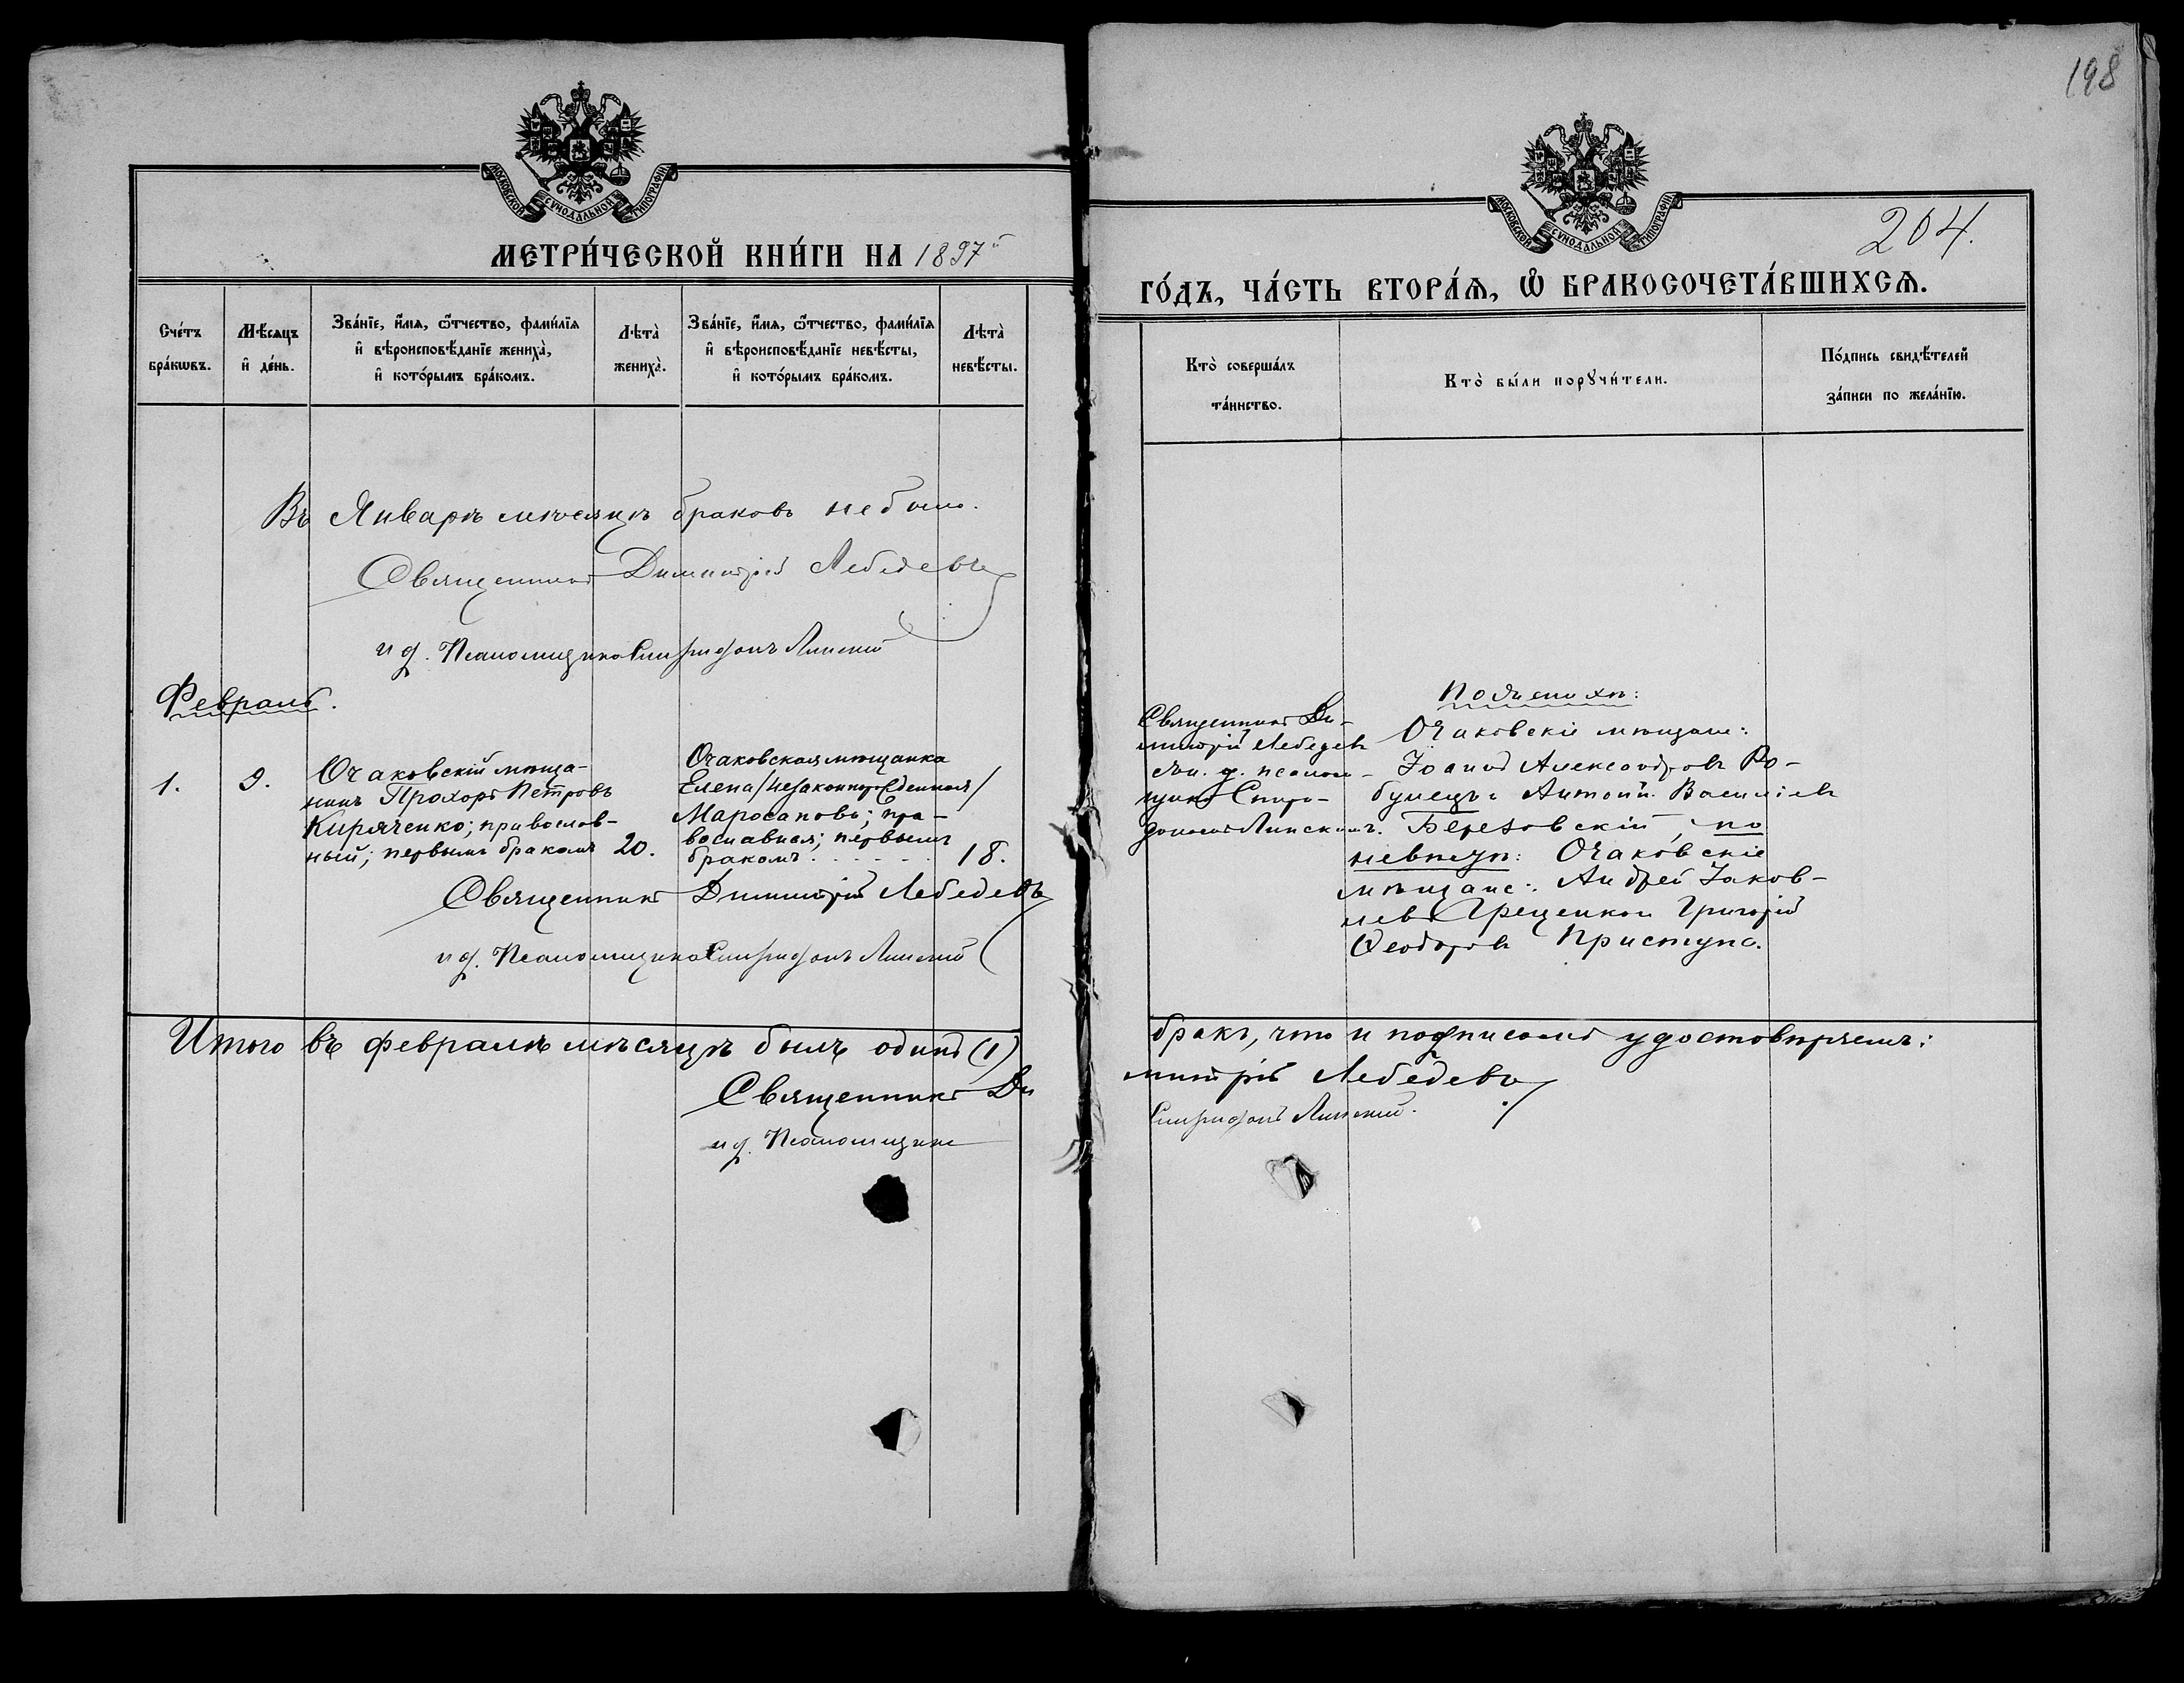 198
МОСКОВСКОЙ СѴНОДАЛЬНОЙ ТИПОГРАФІИ
МОСКОВСКОЙ СѴНОДАЛЬНОЙ ТИПОГРАФІИ
204.
МЕТРИ́ЧЕСКОЙ КНИ́ГИ НА 1897й
ГО́ДЪ, ЧА́СТЬ ВТОРА́Ѧ, Ѽ БРАКОСОЧЕТА́ВШИХСѦ.
Сче́тъ бра́кѡвъ.
Мѣ́сѧцъ и҆ де́нь.
Зва́нїе, и҆́мѧ, ѻ҆́тчество, фами́лїѧ и҆ вѣроисповѣ́данїе жениха̀, и҆ кото́рымъ бра́комъ.
Лѣта̀ жениха̀.
Зва́нїе, и҆́мѧ, ѻ҆́тчество, фами́лїѧ и҆ вѣроисповѣ́данїе невѣ́сты, и҆ кото́рымъ бра́комъ.
Лѣта̀ невѣ́сты.
Кто̀ соверша́лъ та́инство.
Кто̀ бы́ли порꙋчи́тели.
По́дпись свидѣ́телей за́писи по жела́нїю.
Въ Январѣ мѣсяцѣ браковъ небыло.
Священникъ Димитрій Лебедевъ
и д. Псаломщика Спиридонъ Линскій
Февраль.
1.
9.
Очаковскій мѣща-
нинъ Прохоръ Петровъ
Киряченко; православ-
ный; первымъ бракомъ
20.
Очаковская мѣщанка
Елена /незаконнорожденная/
Маросанова; пра-
вославная; первымъ
бракомъ . . . . . .
18.
Священникъ Ди-
митрій Лебедевъ
съ и. д. псалом-
щика Спири-
дономъ Линскимъ.
По женихѣ:
Очаковскіе мѣщане:
Іоаннъ Александровъ Ро-
бунецъ и Антоній Васильевъ
Березовскій; по
невѣстѣ: Очаковскіе
мѣщане: Андрей Іаков-
левъ Греценко и Григорій
Ѳеодоровъ Приступа.
Священникъ Димитрій Лебедевъ
и д. Псаломщика Спиридонъ Линскій
Итого въ февралѣ мѣсяцѣ былъ одинъ (1)
бракъ, что и подписомъ удостовѣряемъ:
Священникъ Ди
митрій Лебедевъ
и д. Псаломщика
Спиридонъ Линскій.